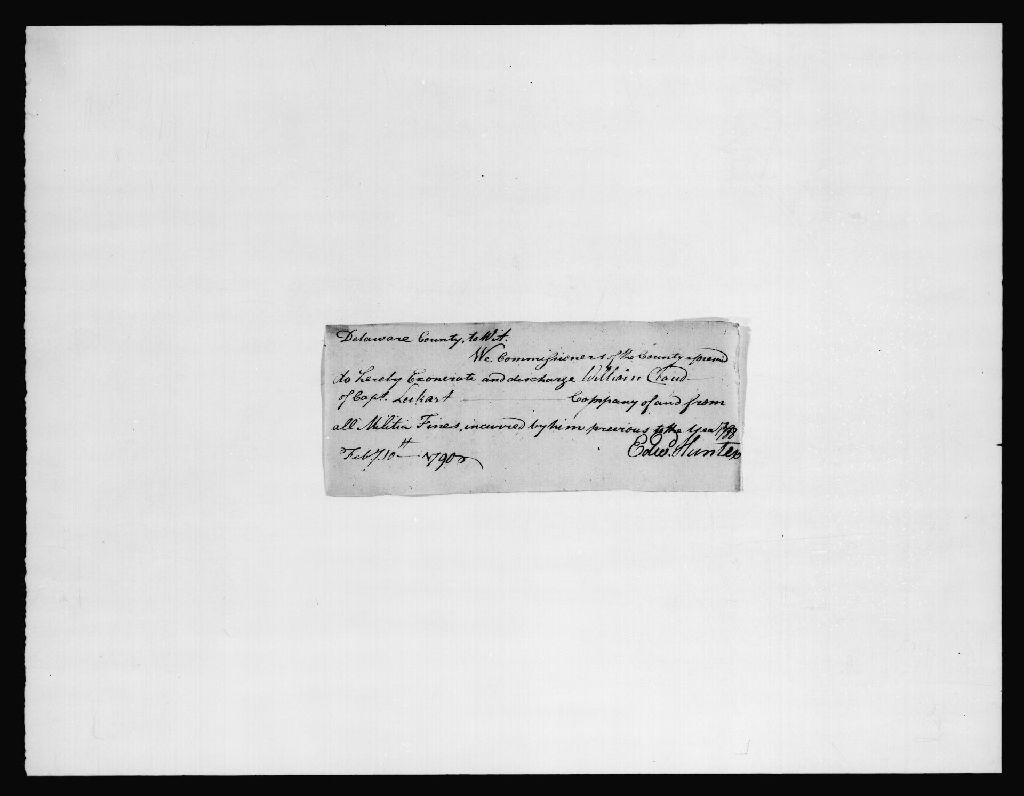 Delaware County, to Wit.
We Commissioners of the County aforesaid
do hereby Exonerate and discharge William Cloud
of Capt. Lockart Company of and from
all Militia Fines, incurred by him previous to the Year 1788
Feby. 10th 1790
Edwd. Hunter